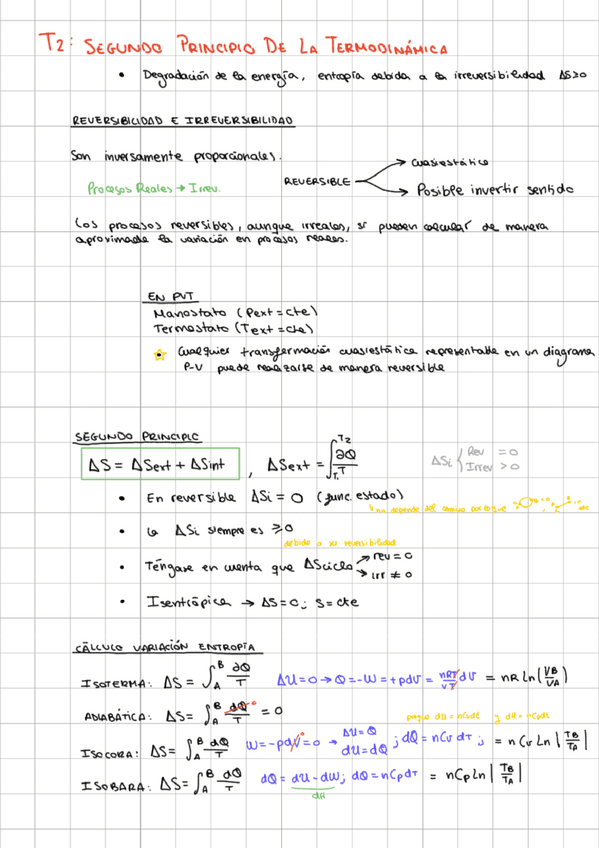 T2: SEGUNDO PRINCIPIO DE LA TERMODINÁMICA
• Degradación de la energía, entropía debida a la irreversibilidad ΔS≥0
REVERSIBILIDAD E IRREVERSIBILIDAD
Son inversamente proporcionales.
Procesos Reales → Irrev.
REVERSIBLE → cuasiestático
→ Posible invertir sentido
Los procesos reversibles, aunque irreales, si pueden calcular de manera
aproximada la variación en procesos reales.
EN PVT
Manostato (Pext = cte)
Termostato (Text = cte)
Cualquier transformación cuasiestática representable en un diagrama
P-V puede realizarse de manera reversible
SEGUNDO PRINCIPIO
ΔS = ΔSext + ΔSint , ΔSext = ∫_{T1}^{T2} ∂Q/T
ΔSi { Rev = 0
Irrev > 0
• En reversible ΔSi = 0 (func. estado)
↳ no depende del camino por el que
• La ΔSi siempre es ≥0
debido a su reversibilidad
• Téngase en cuenta que ΔSciclo → rev = 0
→ irr ≠ 0
• Isentrópica → ΔS = 0; S = cte
CÁLCULO VARIACIÓN ENTROPÍA
ISOTERMA: ΔS = ∫_A^B ∂Q/T ΔU = 0 → Q = -W = +pdV = nRT/VT dV = nR Ln(VB/VA)
ADIABÁTICA: ΔS = ∫_A^B dQ/T⁰ = 0
dU = nCvdt y dH = nCpdt
ISOCORA: ΔS = ∫_A^B dQ/T W = -pdV⁰ = 0 → ΔU = Q
dU = dQ ; dQ = nCv dT ; = n Cv Ln |TB/TA|
ISOBARA: ΔS = ∫_A^B dQ/T dQ = dU - dW; dQ = nCpdT = nCp Ln |TB/TA|
dH